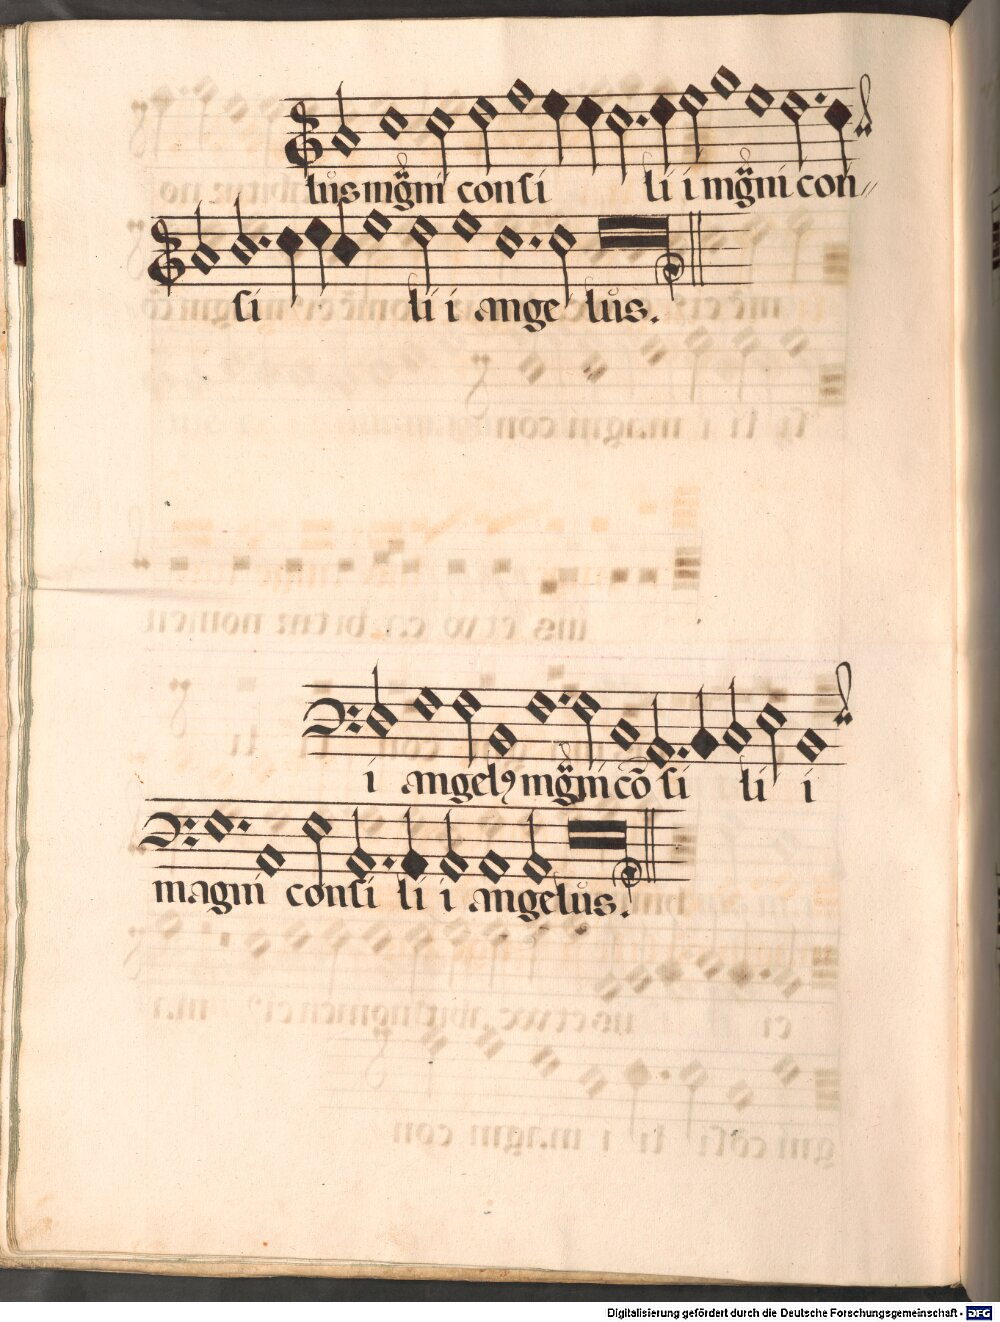 lus mg̃ni consi li i mg̃ni con//
si li i ange lus.
i angelꝰ mg̃ni cõ si li i
magni consi li i angelus.
Digitalisierung gefördert durch die Deutsche Forschungsgemeinschaft - DFG